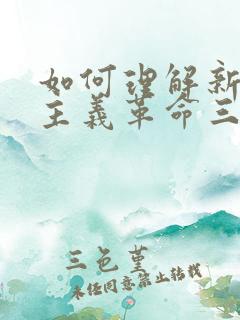 如何理解新
主義革命三
三色堇
未经同意禁止转载